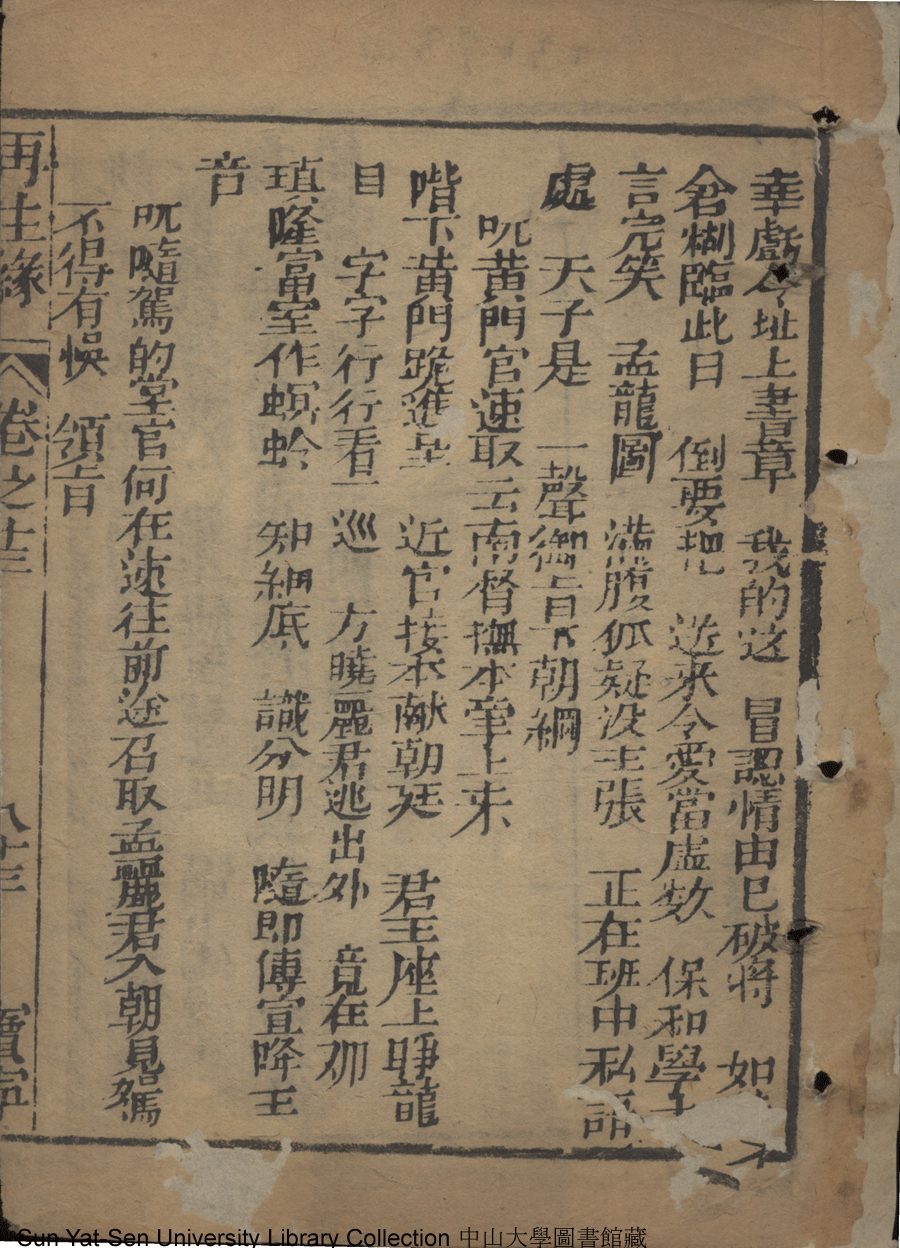 幸戲今址上書章　我的这　冒認情由已破将　如
倉糊臨此日　倒要把　送來令愛當虛数　保和學士
言完笑　孟龍圖　满腹狐疑没主張　正在班中私語
處　天子是　一聲御旨下朝綱
呪黄門官速取云南督撫本章上来
喈下黄門跪進呈　近官接本献朝廷　君王座上睜龍
目　字字行行看一巡　方曉麗君逃出外　竟在
瑱隆富室作螟蛉　知細底　識分明　隨即傳宣降玉
音
呪隨駕的堂官何在速往前途召取孟麗君入朝見駕
不得有悞　須旨
再生緣　卷之十三　八十三　寶寜
Sun Yat-Sen University Library Collection 中山大學圖書館藏